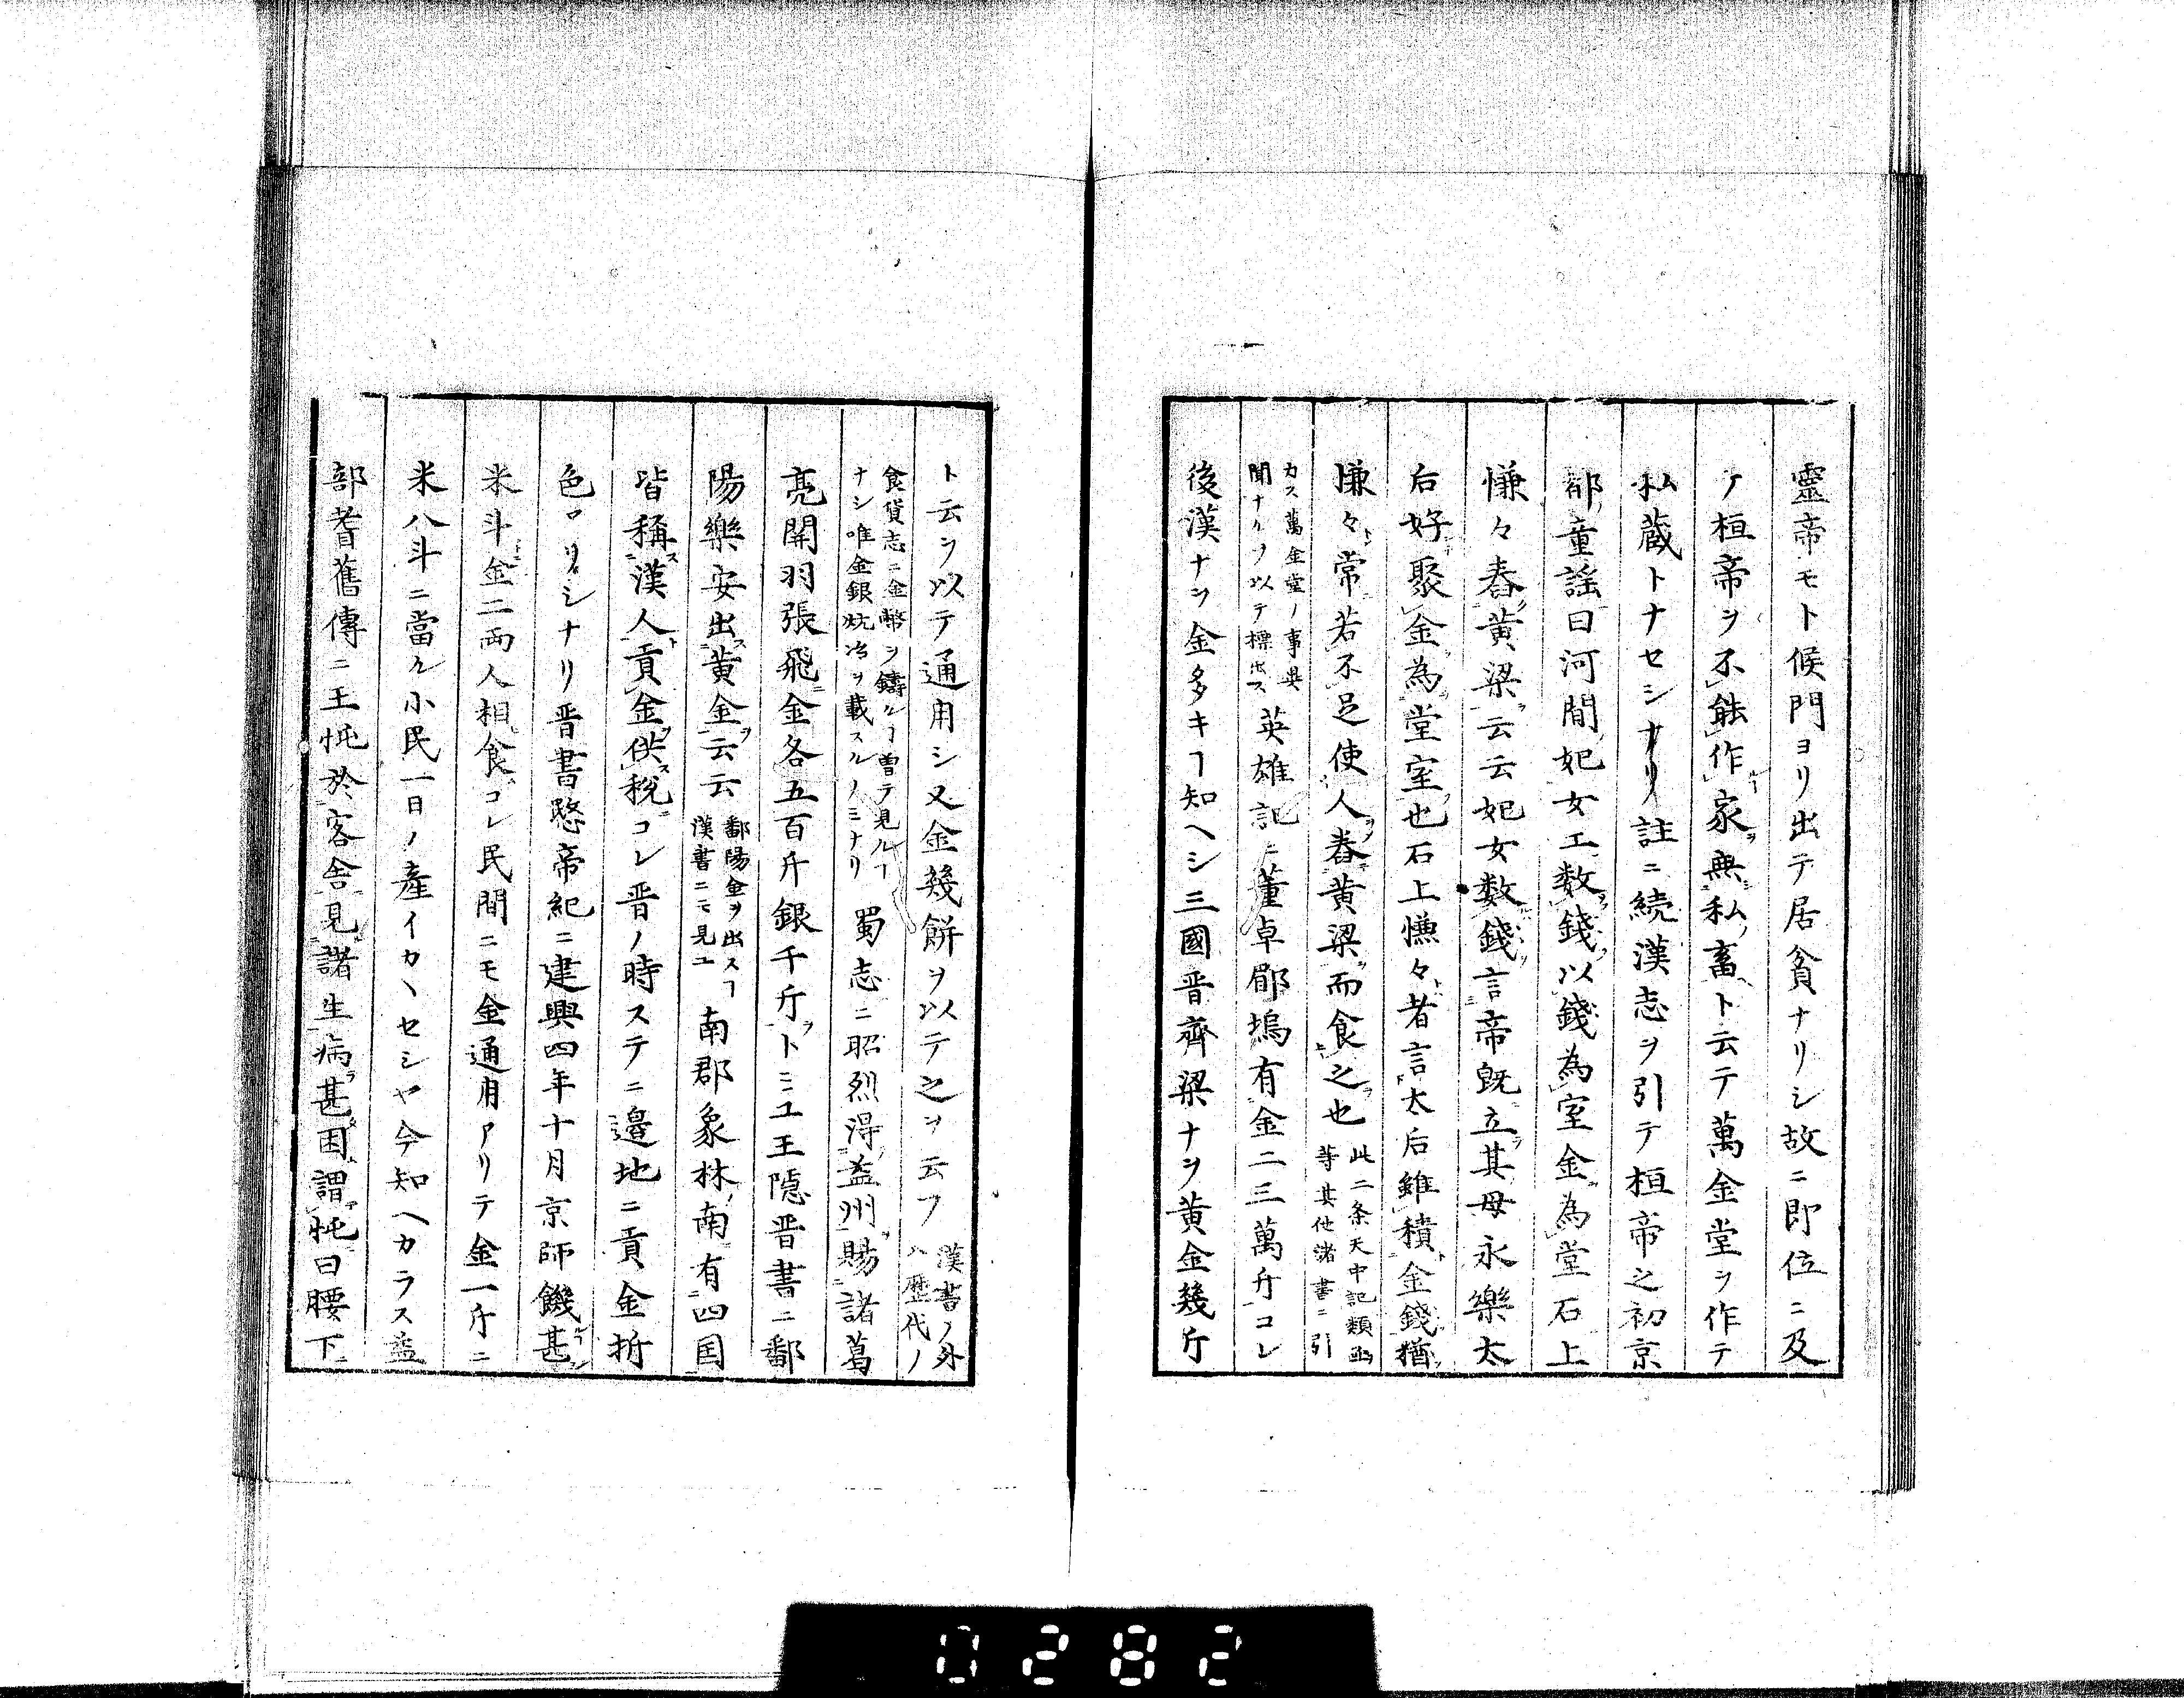 靈帝モト候門ヨリ出テ居貧ナリシ故ニ即位ニ及
ヿ桓帝ヲ不能作家無私畜ト云テ萬金堂ヲ作テ
私蔵トナセシナリ註ニ続漢志ヲ引テ桓帝之初京
都童謡曰河間妃女工数錢以錢為室金為堂石上
慊々舂黄梁云云妃女数錢言帝既立其母永樂太
后好聚金為堂室也石上慊々者言太后雖積金錢猶
慊々常若不足使人舂黄梁而食之也
此二条天中記類函
等其他諸書ニ引
カス萬金堂ノ事異
聞ナルヲ以テ標出ス
英雄記ニ董卓郿塢有金二三萬斤コレ
後漢ナヲ金多キヿ知ヘシ三國晋齊梁ナヲ黄金幾斤
ト云ヲ以テ通用シ又金幾餅ヲ以テ之ヲ云フ
漢書ノ外
ハ歴代ノ
食貨志ニ金幣ヲ鑄ルヿ曽テ見ルヿ
ナシ唯金銀坑冶ヲ載スルノミナリ
蜀志ニ昭烈得益州賜諸葛
亮関羽張飛金各五百斤銀千斤トミユ王隠晋書ニ鄱
陽樂安出黄金云云
鄱陽金ヲ出スヿ
漢書ニモ見ユ
南郡象林南有四国
皆稱漢人貢金供税コレ晋ノ時ステニ邉地ニ貢金折
色アリシナリ晋書愍帝紀ニ建興四年十月京師饑甚
米斗金二両人相食コレ民間ニモ金通用アリテ金一斤ニ
米八斗ニ當ル小民一日ノ産イカヽセシヤ今知ヘカラス益
部耆舊傳ニ王忳於客舎見諸生病甚困謂忳曰腰下
0282